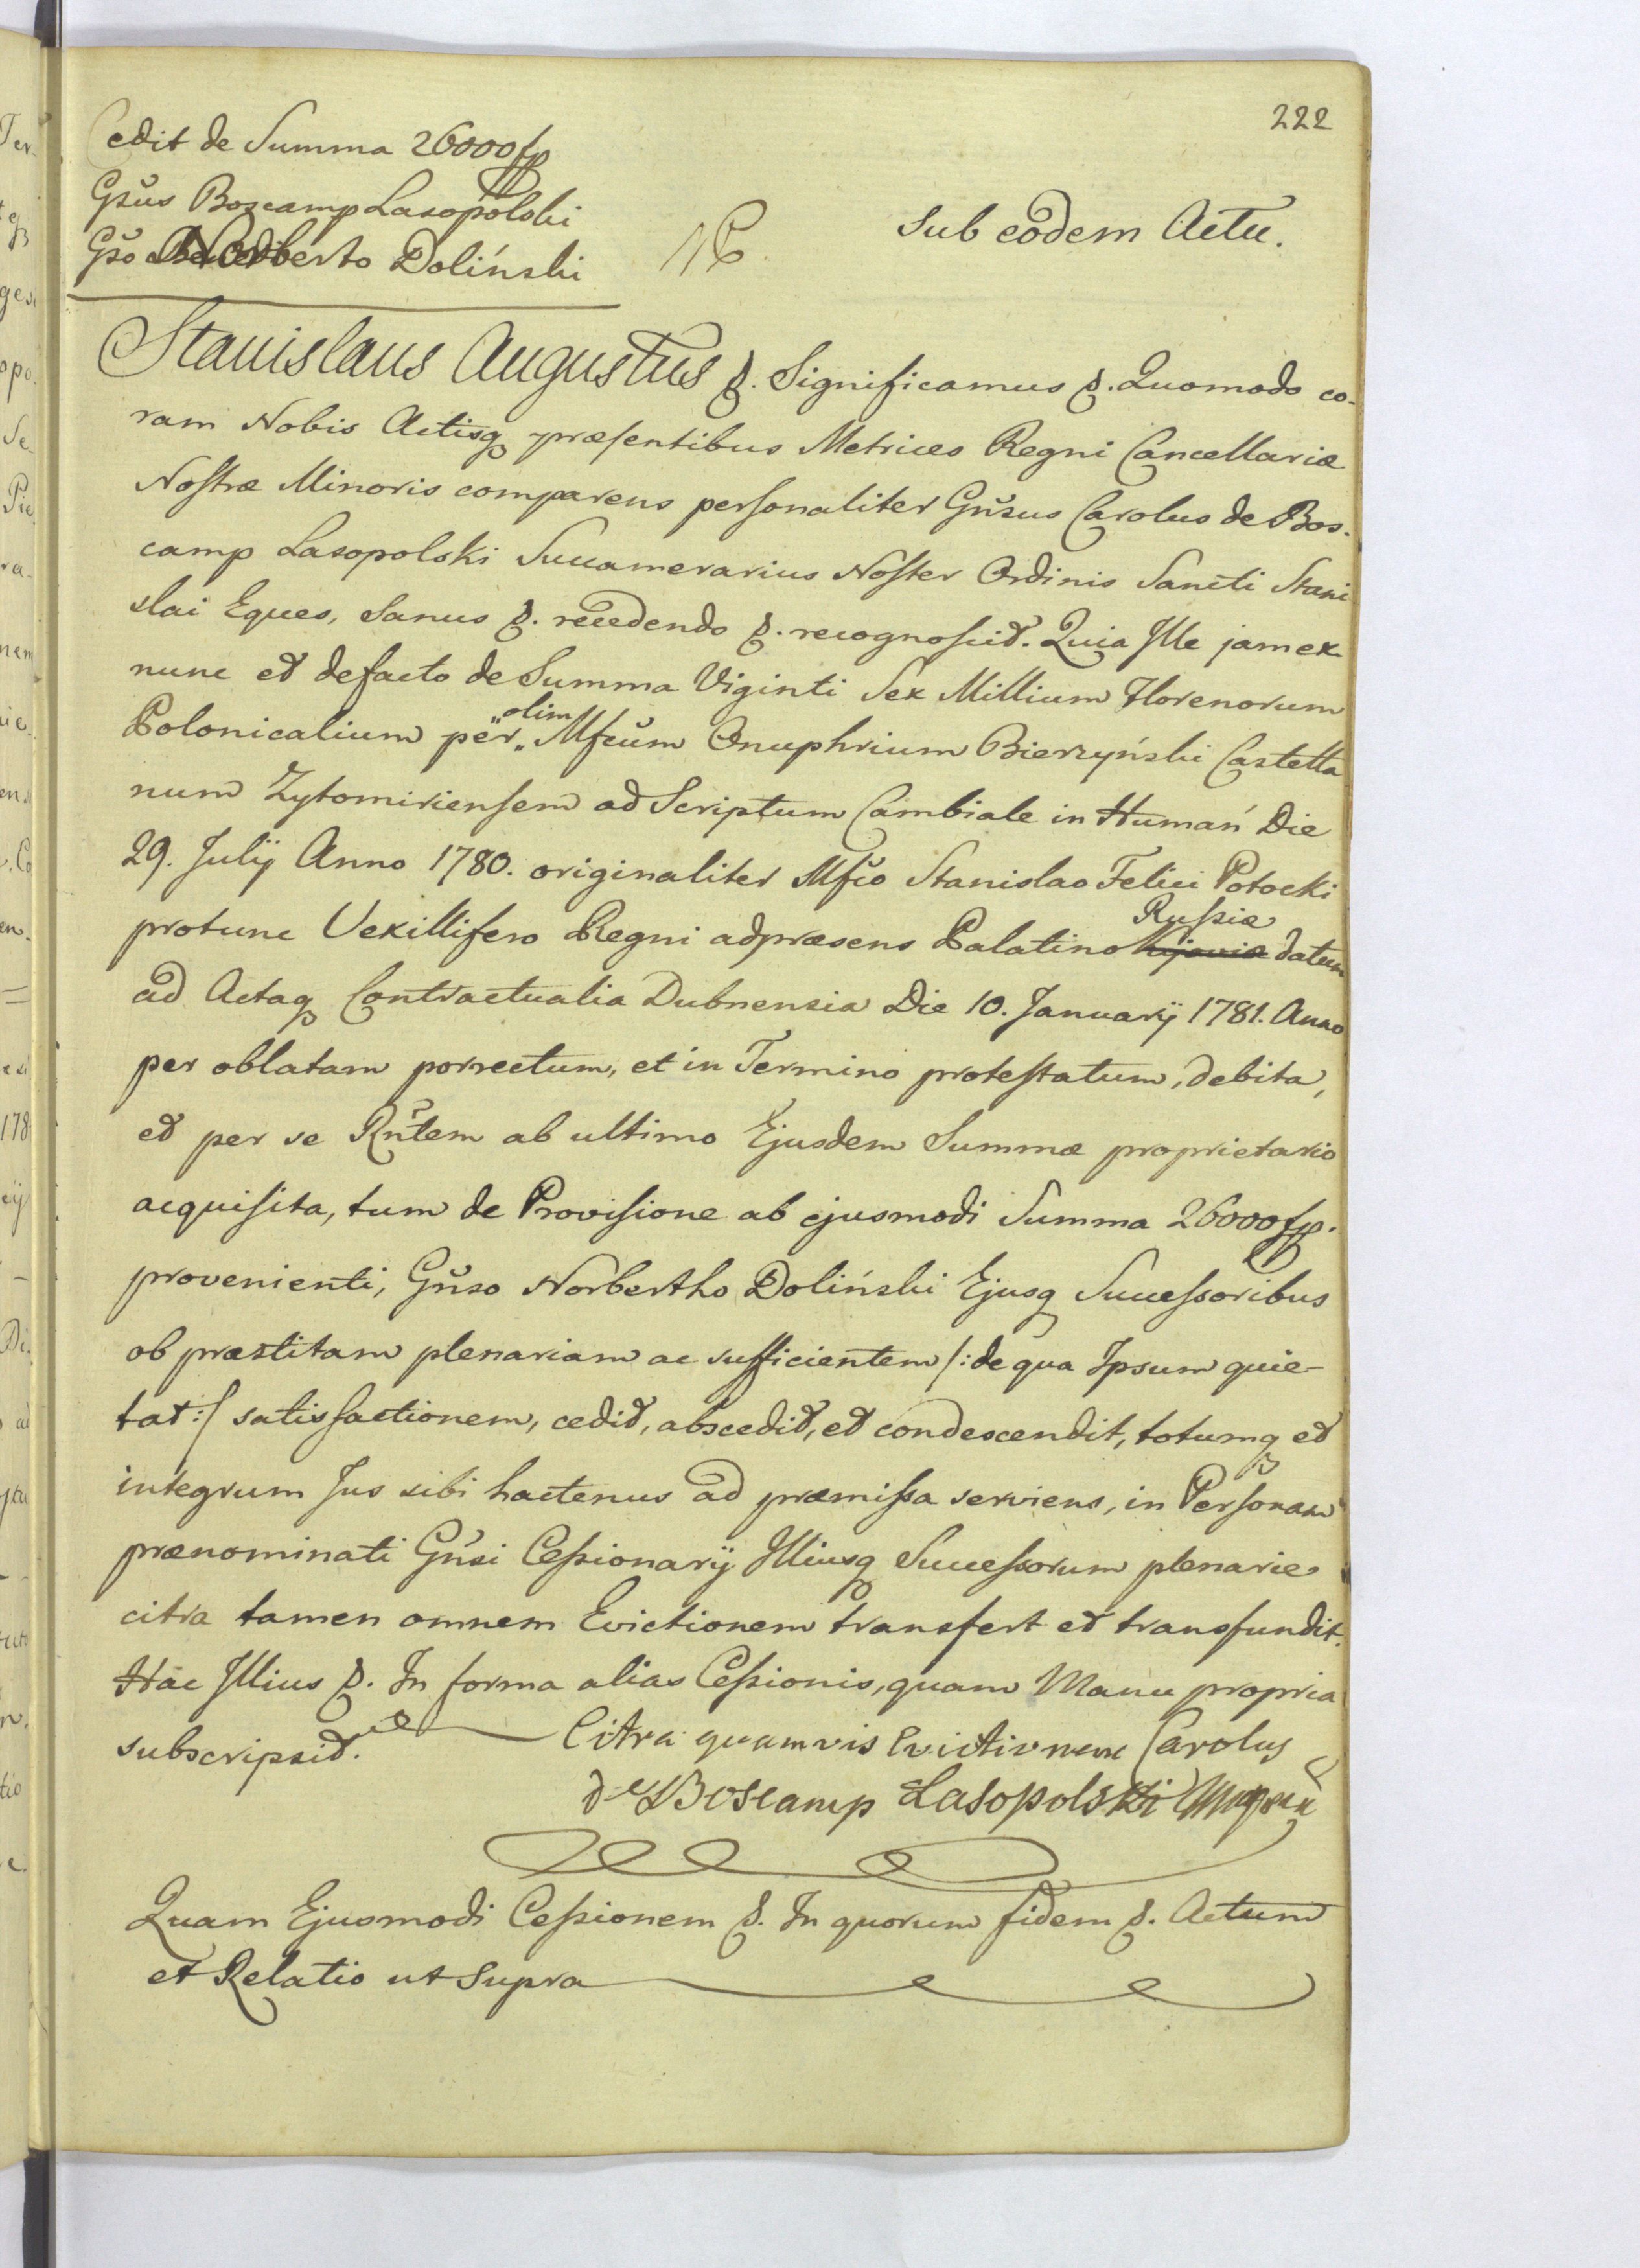 222
Cedit de Summa 26000fp
Gsus Boscamp Lasopolski
Gso Norberto Doliński
Sub eodem Actu.
Stanislaus Augustus &. Significamus &. Quomodo co-
ram Nobis Actisq præsentibus Metrices Regni Cancellariæ
Nostræ Minoris comparens personaliter Gnsus Carolus de Bos-
camp Lasopolski Succamerarius Noster Ordinis Sancti Stani
slai Eques, Sanus &. recedendo &. recognoscit. Quia Ille jam ex
nunc et defacto de Summa Viginti Sex Millium Florenorum
Polonicalium per „olim„ Mfcum Onuphrium Bierzyński Castella
num Zytomiriensem ad Scriptum Cambiale in Humań Die
29. Julij Anno 1780. originaliter Mfco Stanislao Felici Potocki
protunc Vexillifero Regni adpræsens Palatino Kijoviæ Russiæ datum
ad Actaq Contractualia Dubnensia Die 10. Januarij 1781. Anno
per oblatam porrectum, et in Termino protestatum, debita,
et per se Rntem ab ultimo Ejusdem Summæ proprietario
acquisita, tum de Provisione ab ejusmodi Summa 26000fp.
provenienti, Gnso Norbertho Doliński Ejusq Successoribus
ob præstitam plenariam ac sufficientem /: de qua Ipsum quie-
tat :/ satisfactionem, cedit, abscedit, et condescendit, totumq et
integrum Jus sibi hactenus ad præmissa serviens, in Personam
prænominati Gnsi Cessionarij Illiusq Successorum plenarie
citra tamen omnem Evictionem transfert et transfundit.
Hac Illius &. In forma alias Cessionis, quam Manu propria
subscripsit. Citra quamvis Evictionem Carolus
de Boscamp Lasopolski mpria
Quam Ejusmodi Cessionem &. In quorum fidem &. Actum
et Relatio ut Supra